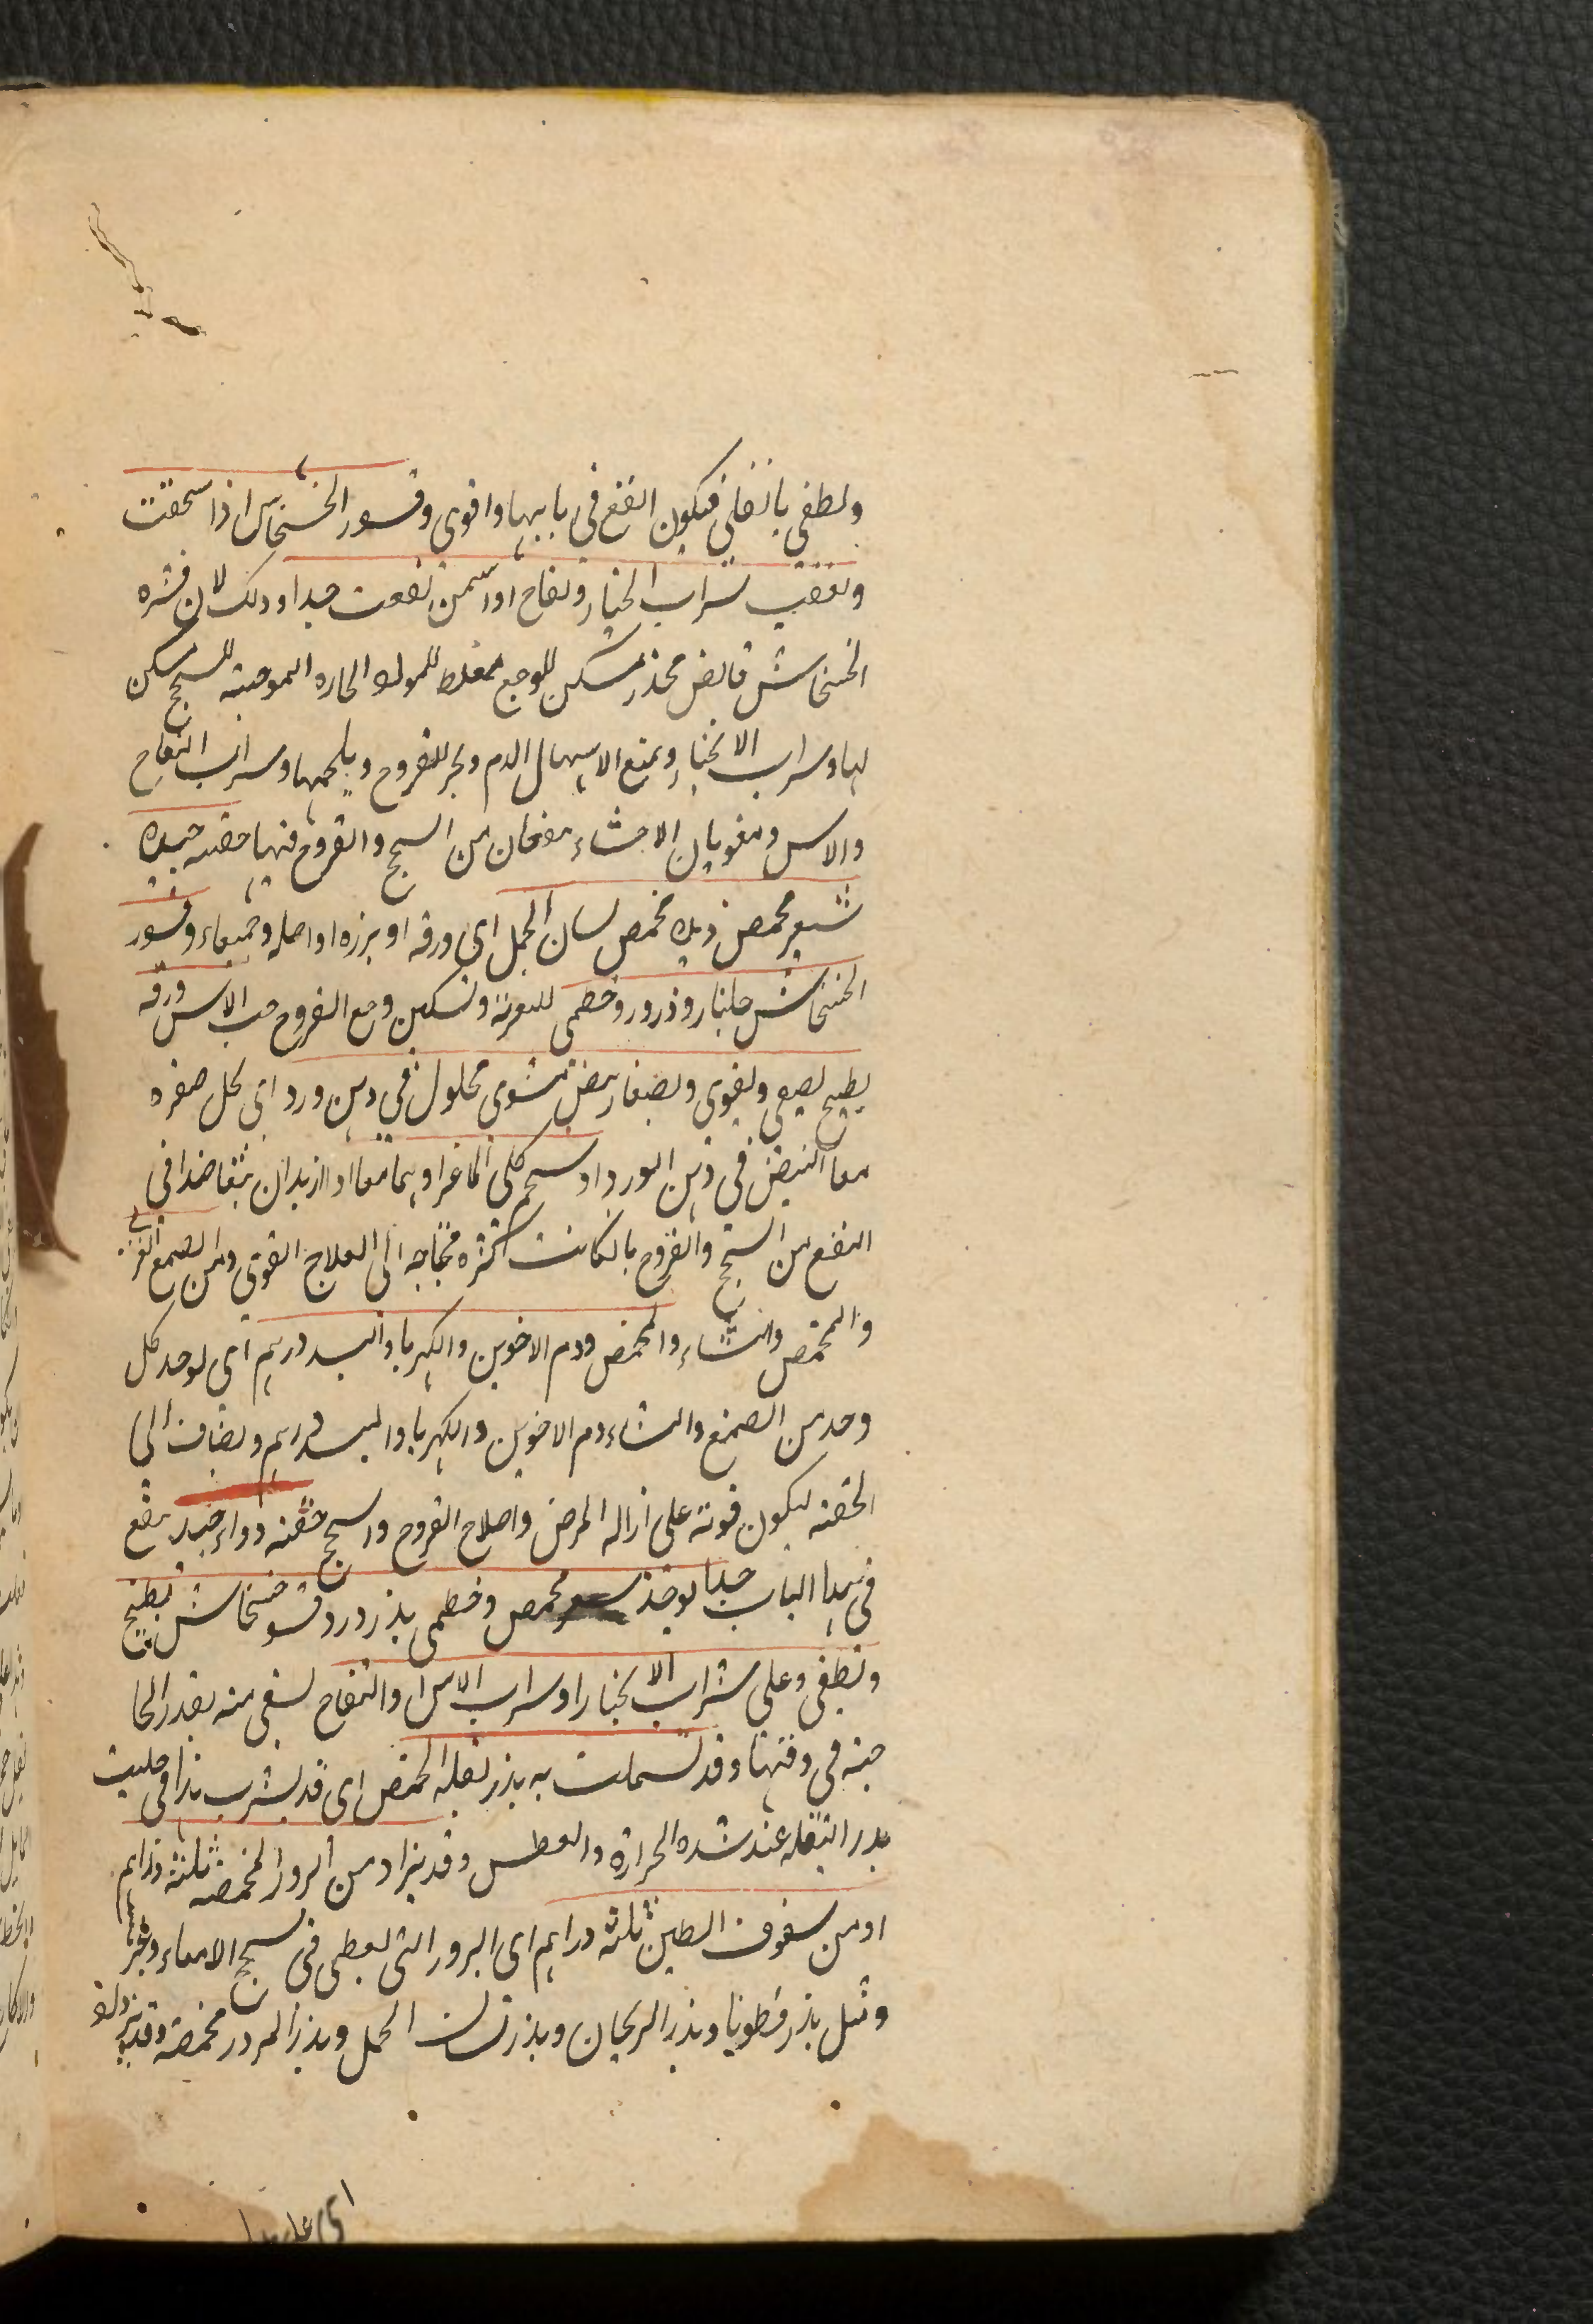 ولطفی بانفاني فيكون انفع في بابهما واقوى وقسور الخشخاش اذا سحقت
وتعقيب شراب الخبار وتفاح اوراسمن نفعت جدا وذلك لان قشره
الخشخاش قابض مخدر مسكن للوجع مغلط للمواد الحاره الموجبه للسحج مسكن
لها وسراب الانجبار ويمنع الاسهال الدم ويجر القروح ويلحمها وسراب التفاح
والاس ومقويان الاحشاء مفحان من السحج والقروح فيها حقنه جيده
شعير محمص ذيله مخمص لسان الحمل اى ورقه او برزه او اصله وجميعاء وقسور
الخشخاش جلنار وذرورد وخطمى للتعرية وتسكين وجع القروح حب الاس ورقه
يطبخ لصفي ولقوى وبصفار بيض مشوى محلول في دهن ورد اى لحل صفره
معا البيض في دهن الورد او سحم كلى الماعز او بهما معا او ازيدان بتعاضدا في
النفع من السحج والقروح بالكانت اكثره محتاجه الى العلاج القوى ومن الصمغ
والمحمص والنشاء والمحمص ودم الاخوين والكهربا والبسد درهم اى لوحد كل
وحد من الصمغ والنشاء دم الاخوين والكهربا والبسد دراهم ويضاف الى
الحقنه ليكون قوته على ازاله المرض واصلاح القروح والسحج حقنه دواء جيد ينفع
في هذا الباب جدا يوخذ شعير محمص وخطمى بذر ورد وقشو خشخاش تطبخ
وتطفى وعلى شراب الانجبار او سراب الاس او التفاح لسقى منه بقدر الحا
جته في وقتها وقد تسملت به بذر بقله الحمض اى قد لشرب هذا في حليب
بدر البقله عند شده الحرارة والعطس وقد يزاد من البرور المخمصه ثلثه دراهم
او من سفوف الطين ثلثه دراهم اى البرور التى لعطى في سحج الامعاء وغيرها
ومثل بذر قطونا وبذر الريحان وبذر لسان الحمل وبذر المرور محمصة وقد